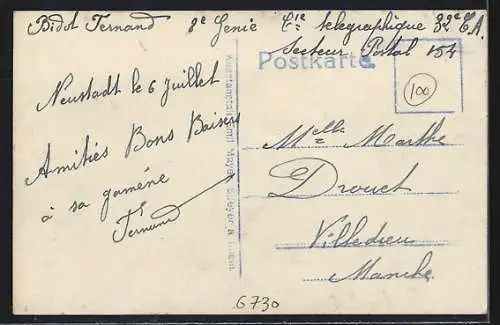 Bidot Fernand 8e Genie Cie telegraphique 32e C.A.
Secteur Postal 154
Postkarte
100
Neustadt le 6 Juillet
Amitiés Bons Baisers
à sa gamène
Fernand
Kunstanstalt Emil Mayer, Speyer a. Rhein.
Melle Marthe
Drouet
Villedieu
Manche
6730